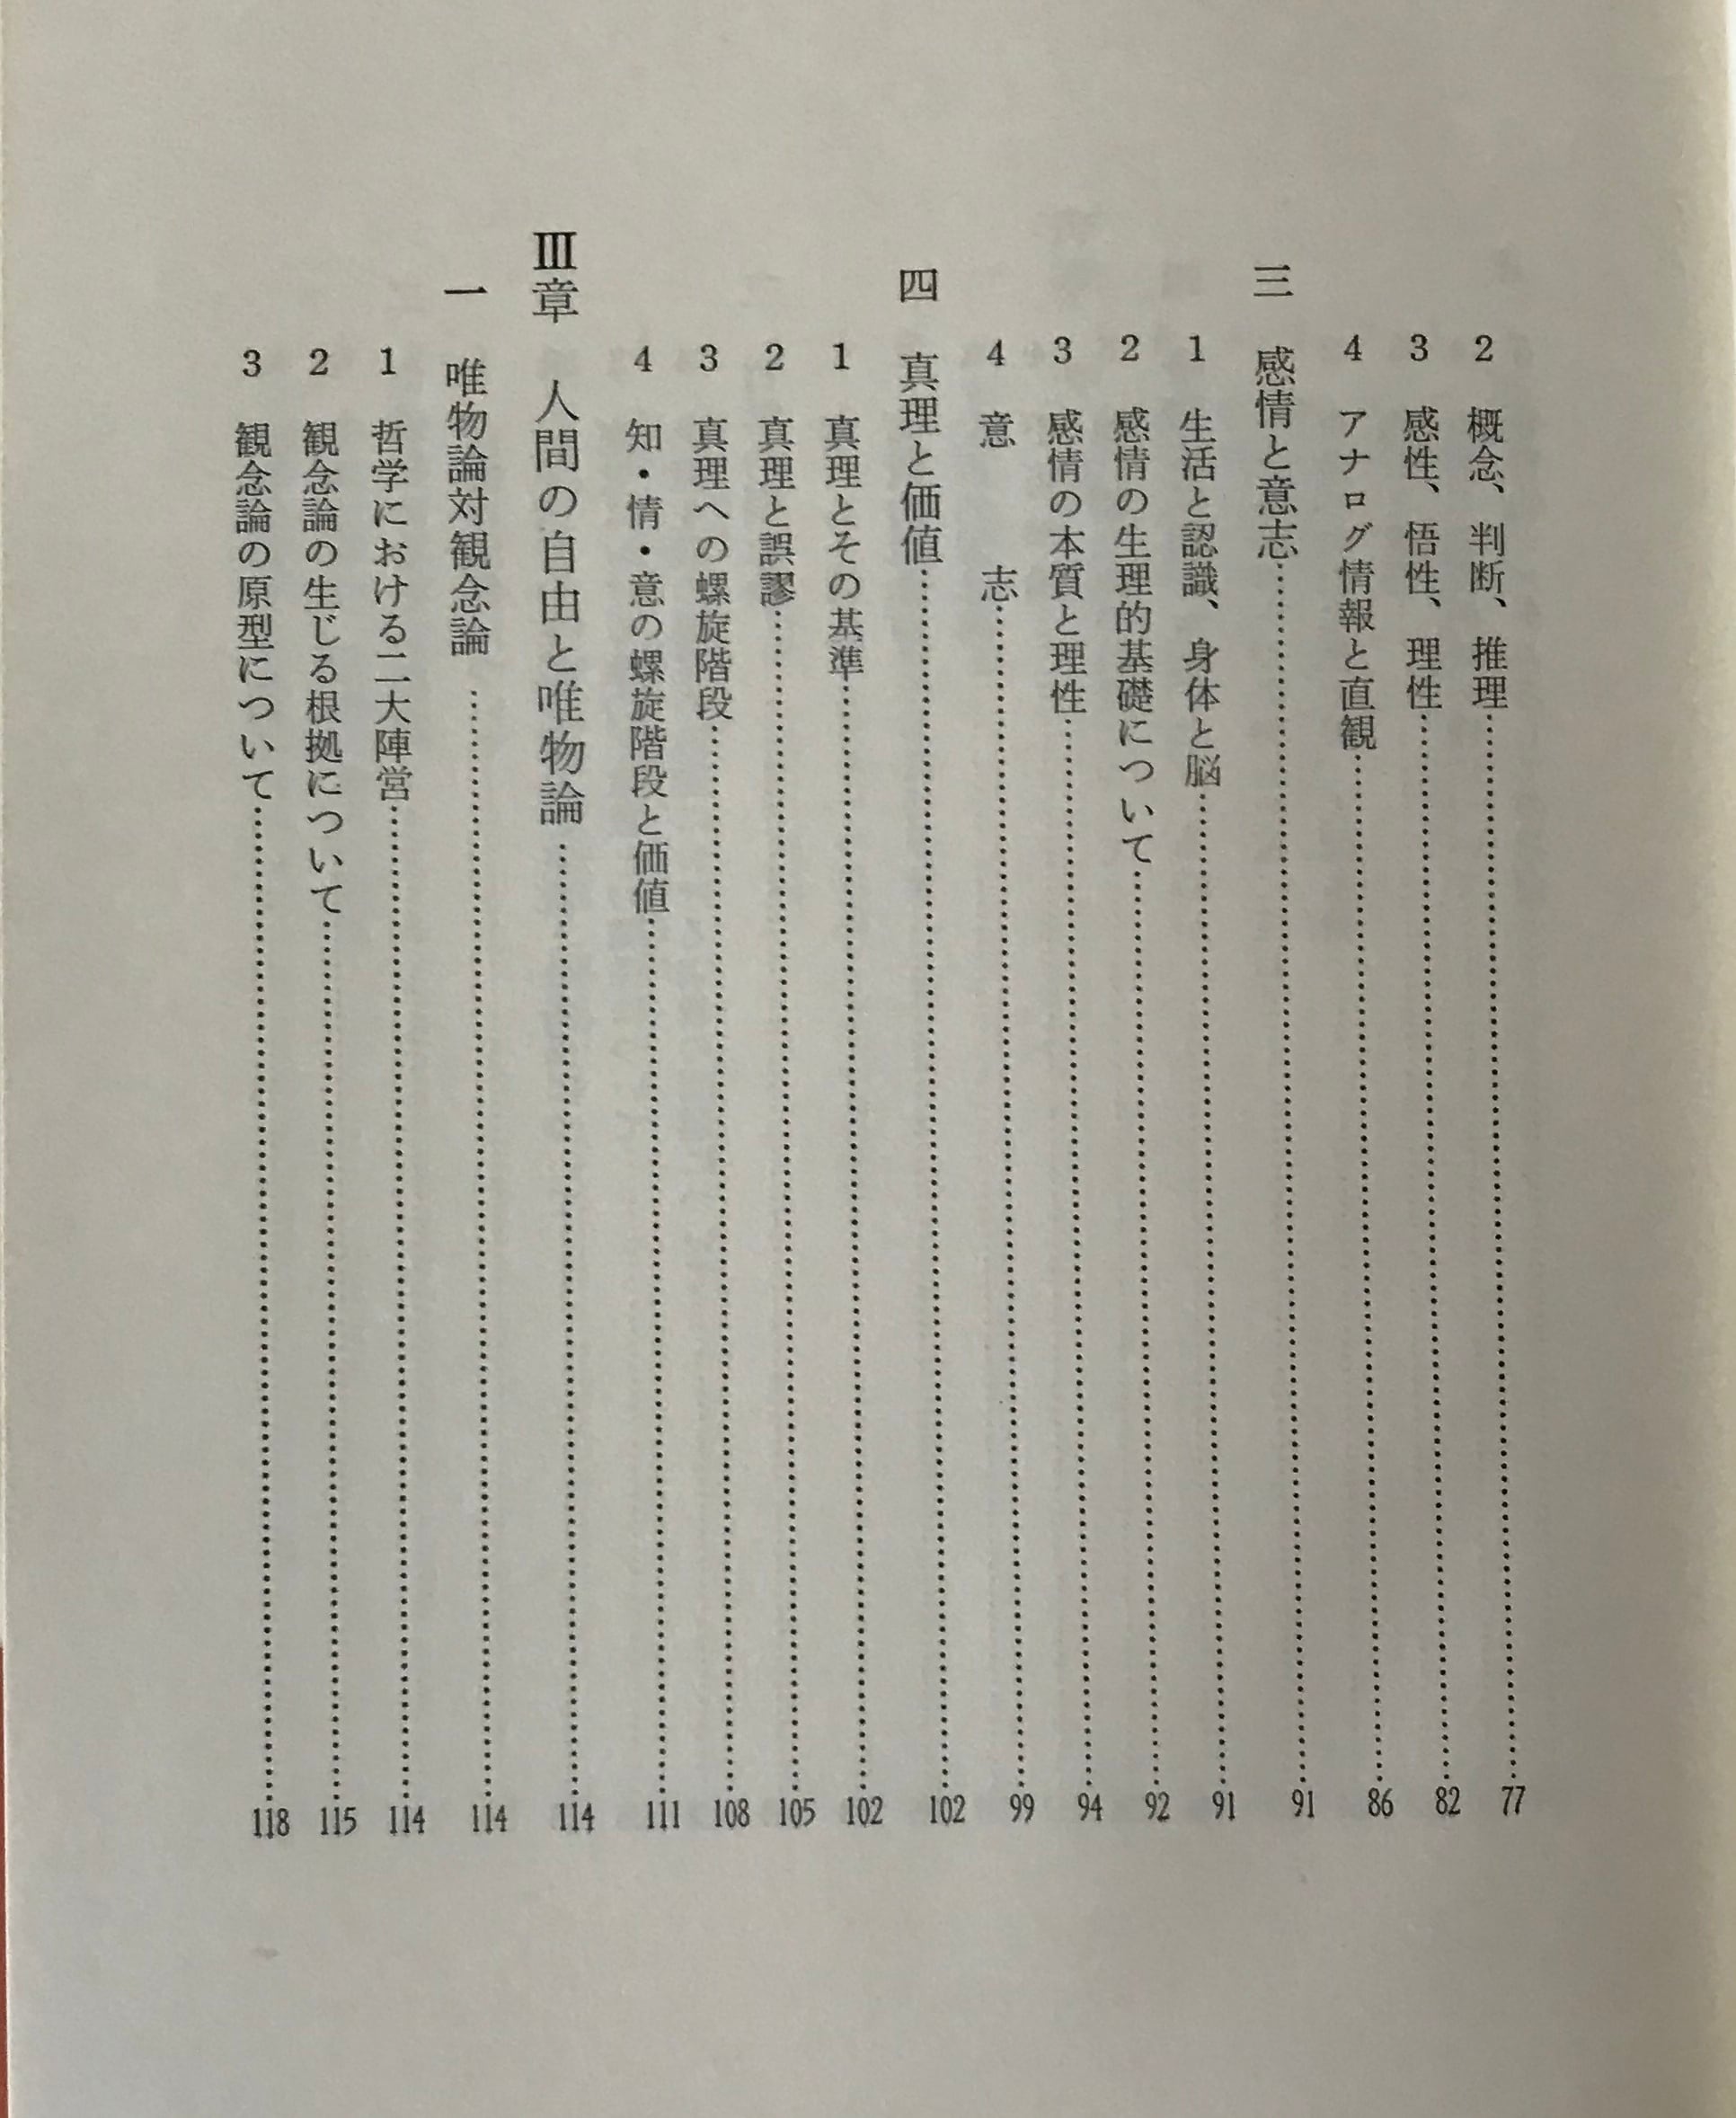 2 概念、判断、推理……77
3 感性、悟性、理性……82
4 アナログ情報と直観……86
三 感情と意志……91
1 生活と認識、身体と脳……91
2 感情の生理的基礎について……92
3 感情の本質と理性……94
4 意志……99
四 真理と価値……102
1 真理とその基準……102
2 真理と誤謬……105
3 真理への螺旋階段……108
4 知・情・意の螺旋階段と価値……111
Ⅲ章 人間の自由と唯物論……114
一 唯物論対観念論……114
1 哲学における二大陣営……114
2 観念論の生じる根拠について……115
3 観念論の原型について……118